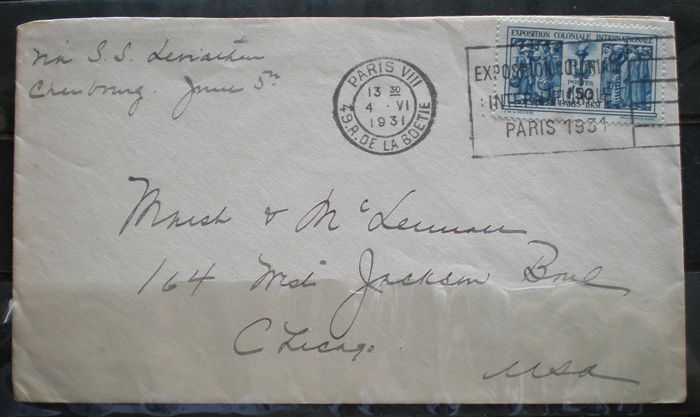 via S.S. Leviathan
Cherbourg. June 5th
PARIS VIII
13 30
4 · VI
1931
49. R. DE LA BOETIE
EXPOSITION COLONIALE INTERNATIONALE
POSTES
1F50
PARIS 1931
EXPOSITION COLONIALE
INTERNATIONALE
PARIS 1931
Marsh & McLennan
164 West Jackson Boul
Chicago.
USA